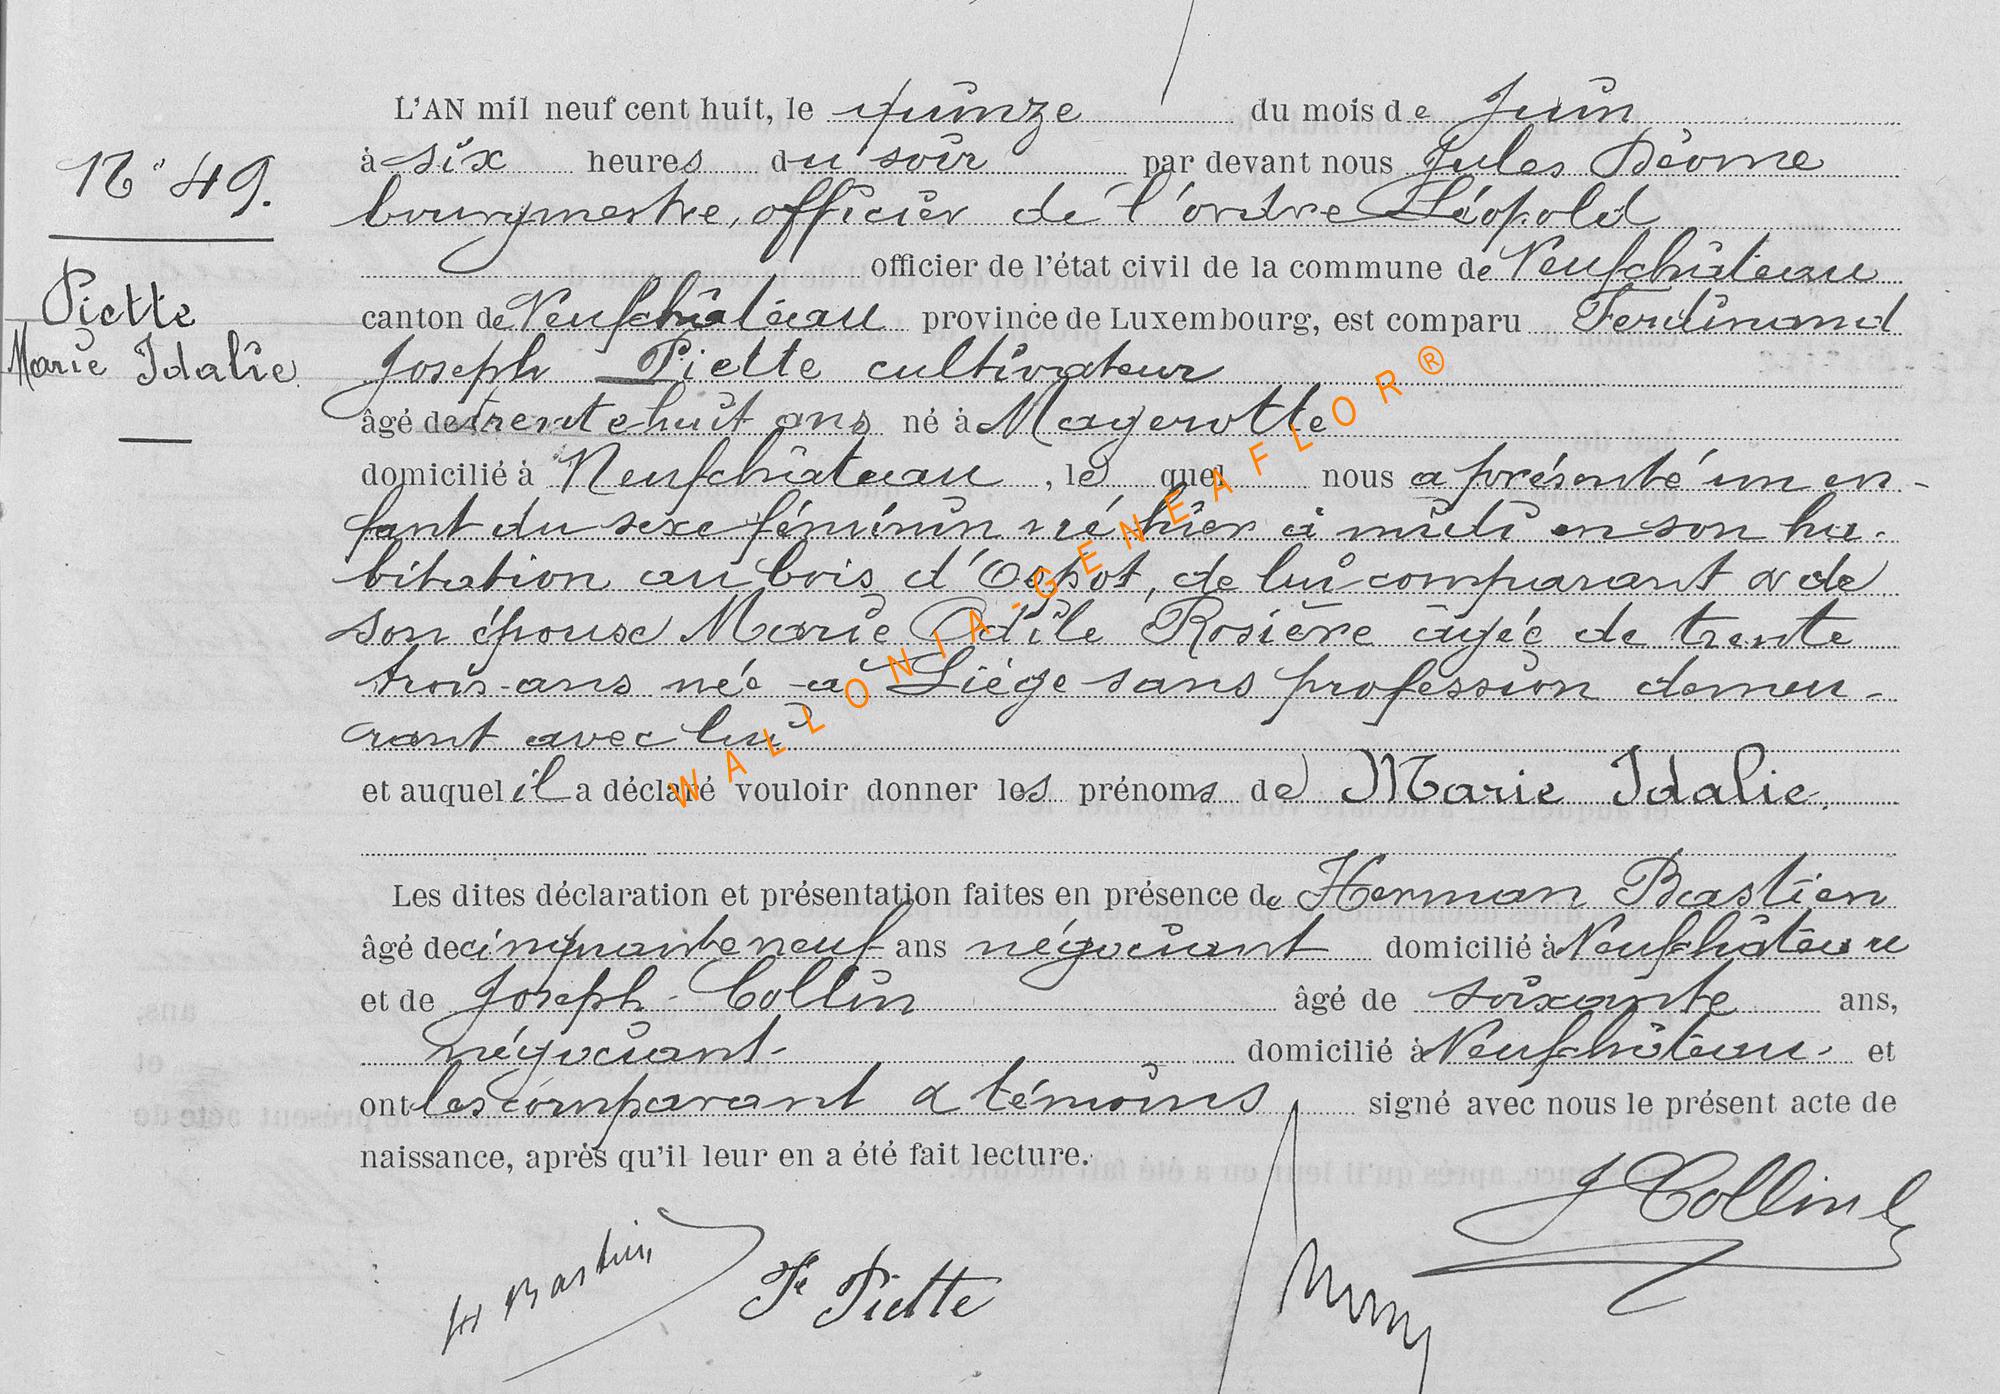 N° 49.
Piette
Marie Idalie
L'AN mil neuf cent huit, le quinze du mois de Juin
à six heures du soir par devant nous Jules Déome
bourgmestre, officier de l'ordre Léopold
officier de l'état civil de la commune de Neufchâteau
canton de Neufchâteau province de Luxembourg, est comparu Ferdinand
Joseph Piette cultivateur
âgé de trente huit ans né à Magerotte
domicilié à Neufchâteau, le quel nous a présenté un en-
fant du sexe féminin né hier à midi en son ha-
bitation au bois d'Ospot, de lui comparant & de
son épouse Marie Odile Rosière âgée de trente
trois ans née à Liége sans profession demeu-
rant avec lui
et auquel il a déclaré vouloir donner les prénoms de Marie Idalie.
Les dites déclaration et présentation faites en présence de Herman Bastien
âgé de cinquante neuf ans négociant domicilié à Neufchâteau
et de Joseph Collin âgé de soixante ans,
négociant domicilié à Neufchâteau et
ont les comparant & témoins signé avec nous le présent acte de
naissance, après qu'il leur en a été fait lecture.
J Collin
H Bastien
F Piette
WALLONIA-GENEAFLOR®